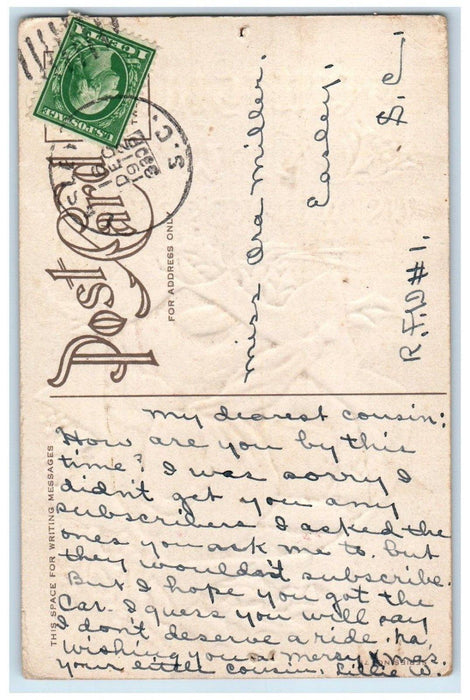 U.S.POSTAGE
S.C.
DEC
Post Card
FOR ADDRESS ONLY
Miss Ora Miller.
Easley.
S.C.
R.F.D#1.
THIS SPACE FOR WRITING MESSAGES
My dearest cousin:
How are you by this
time? I was sorry I
didn't get you any
subscribers I asked the
ones you ask me to. but
they wouldn't subscribe.
But I hope you got the
Car. I guess you will say
I don't deserve a ride. ha,
Wishing you a merry Xmas.
your little cousin, Lillie W.